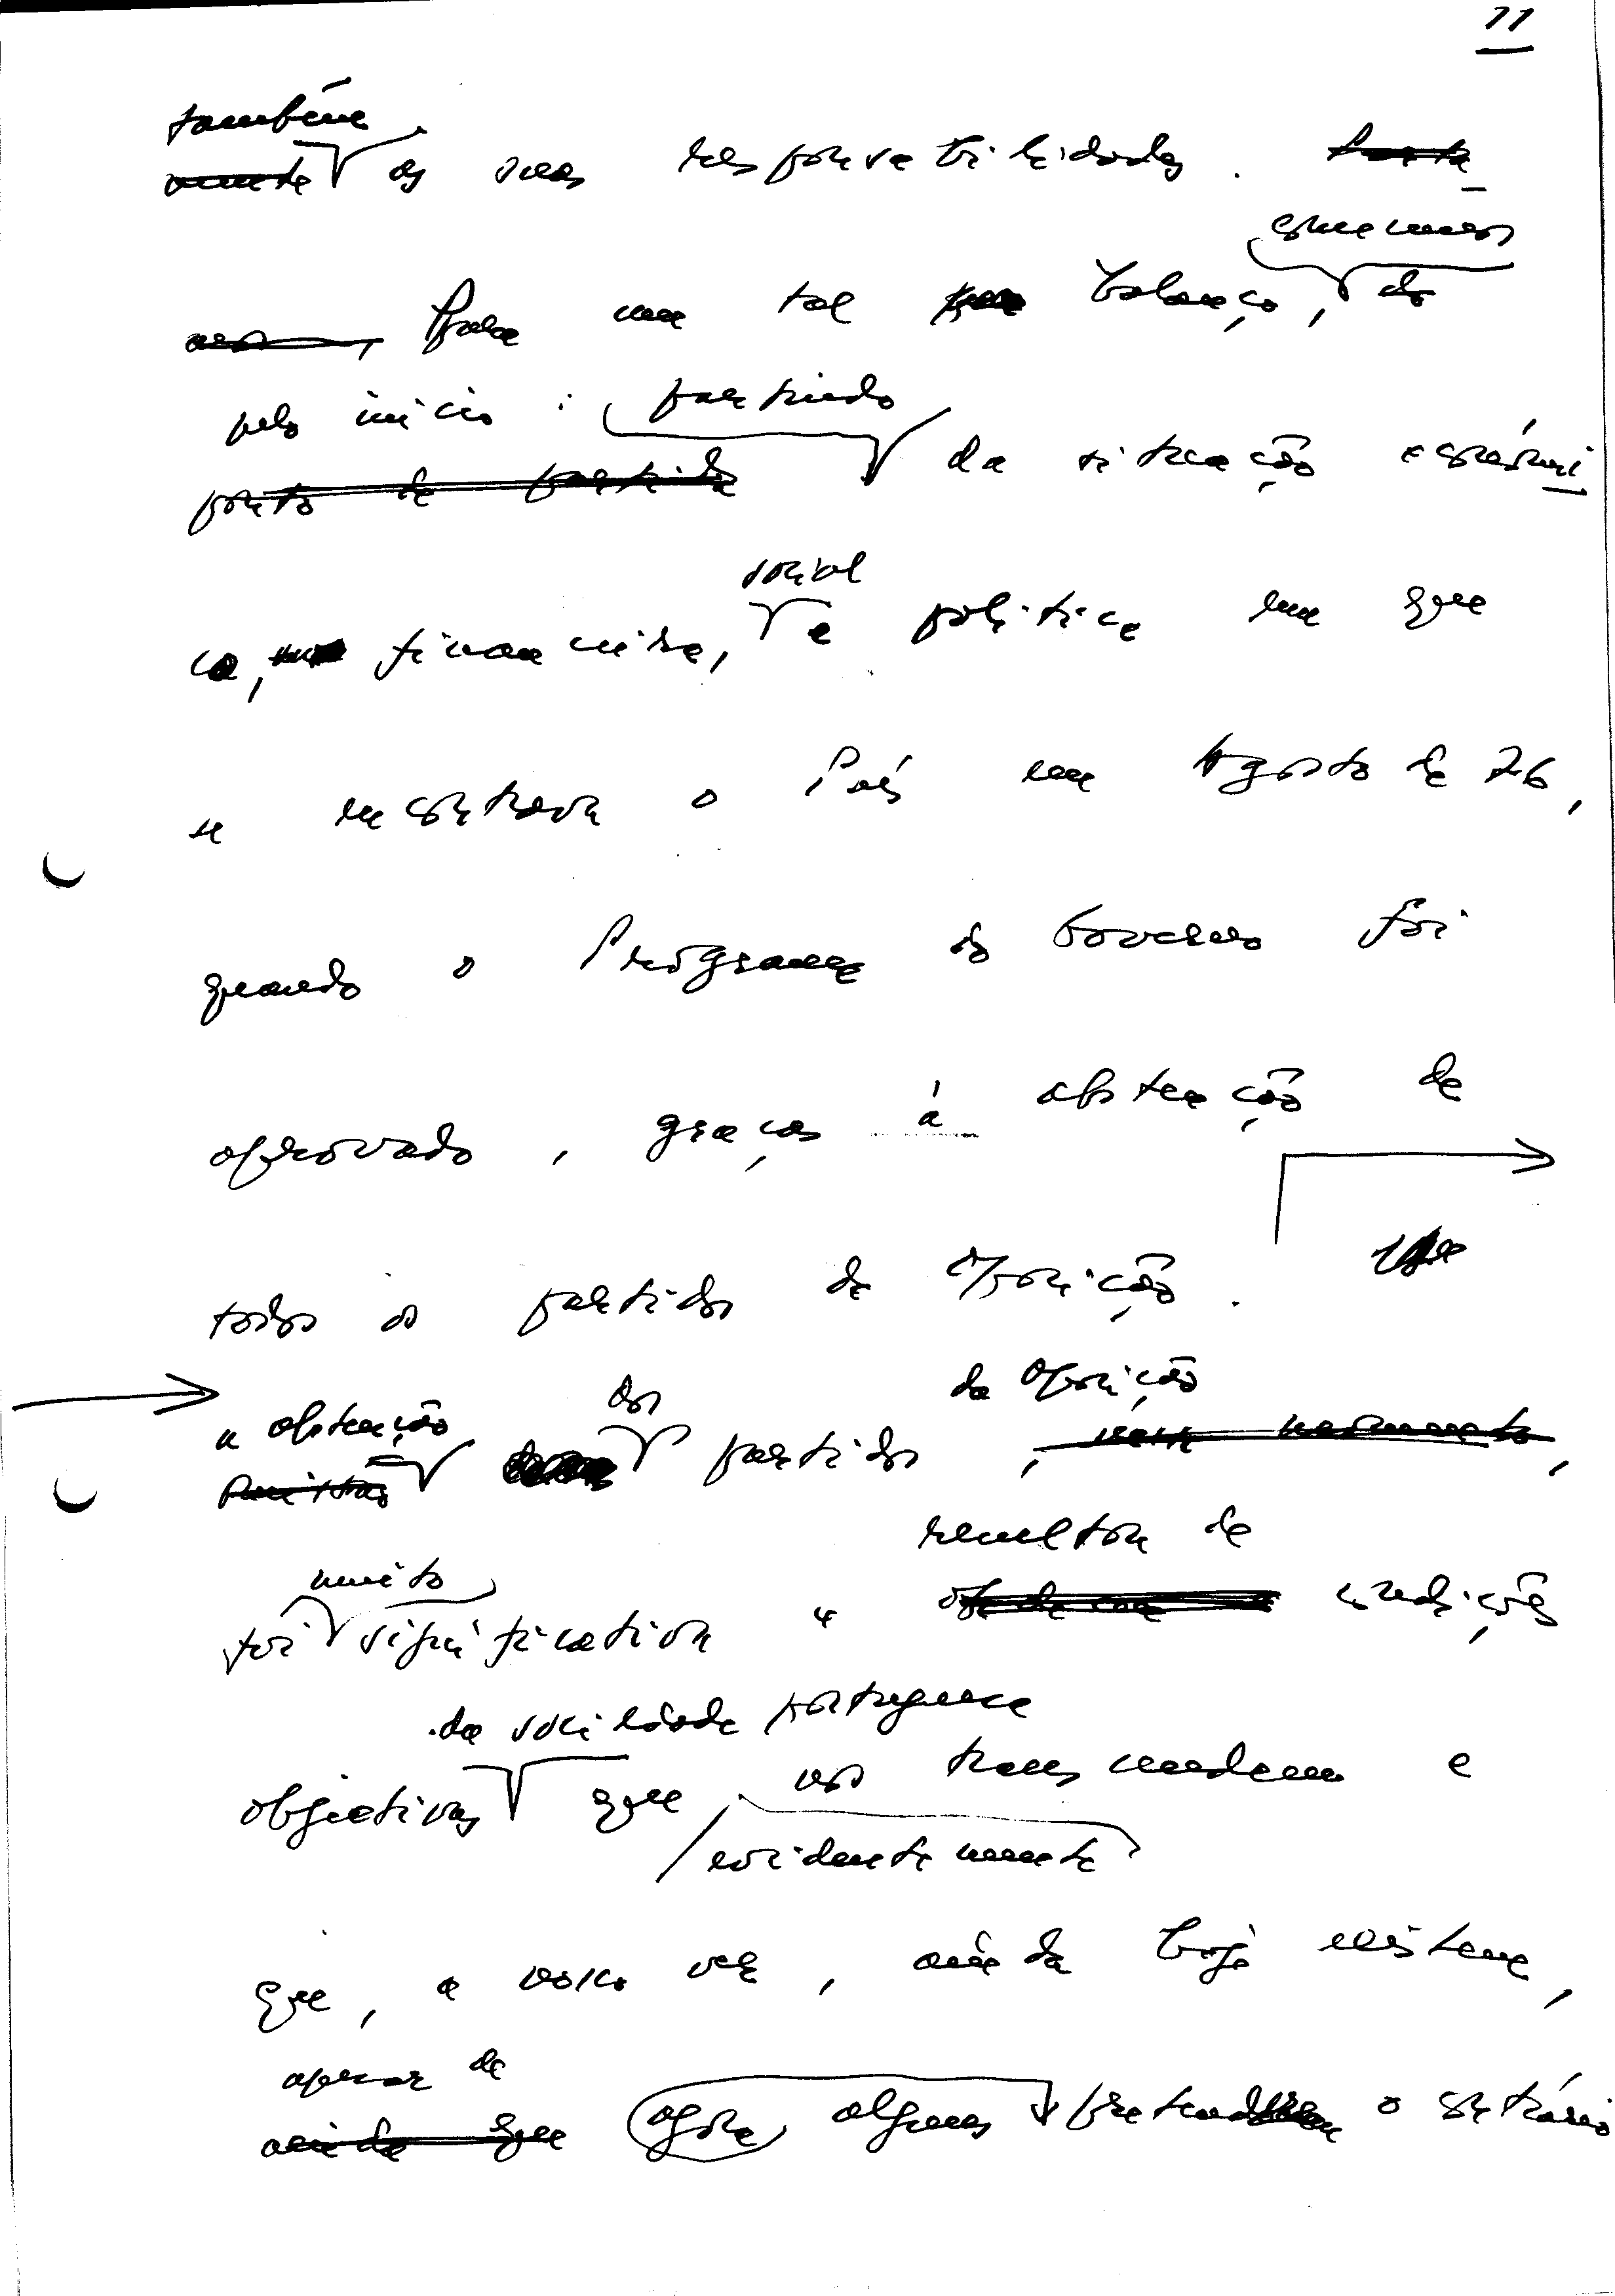 11
também
as suas responsabilidades.
comecemos
Para um tal balanço, do
pelo início: partindo
ponto de partida da situação económi
social
ca, financeira, e política em que
se encontrava o País em Agosto de 76,
quando o Programa do Governo foi
aprovado, graças à abstenção de
todos os partidos da Oposição.
a abstenção dos da Oposição
partidos,
muito resultou de
foi significativa e condições
da sociedade portuguesa
objectivas que não transcendem e
evidentemente
que, a nosso ver, ainda hoje existem,
apesar de
ainda que agora alguns o contrário